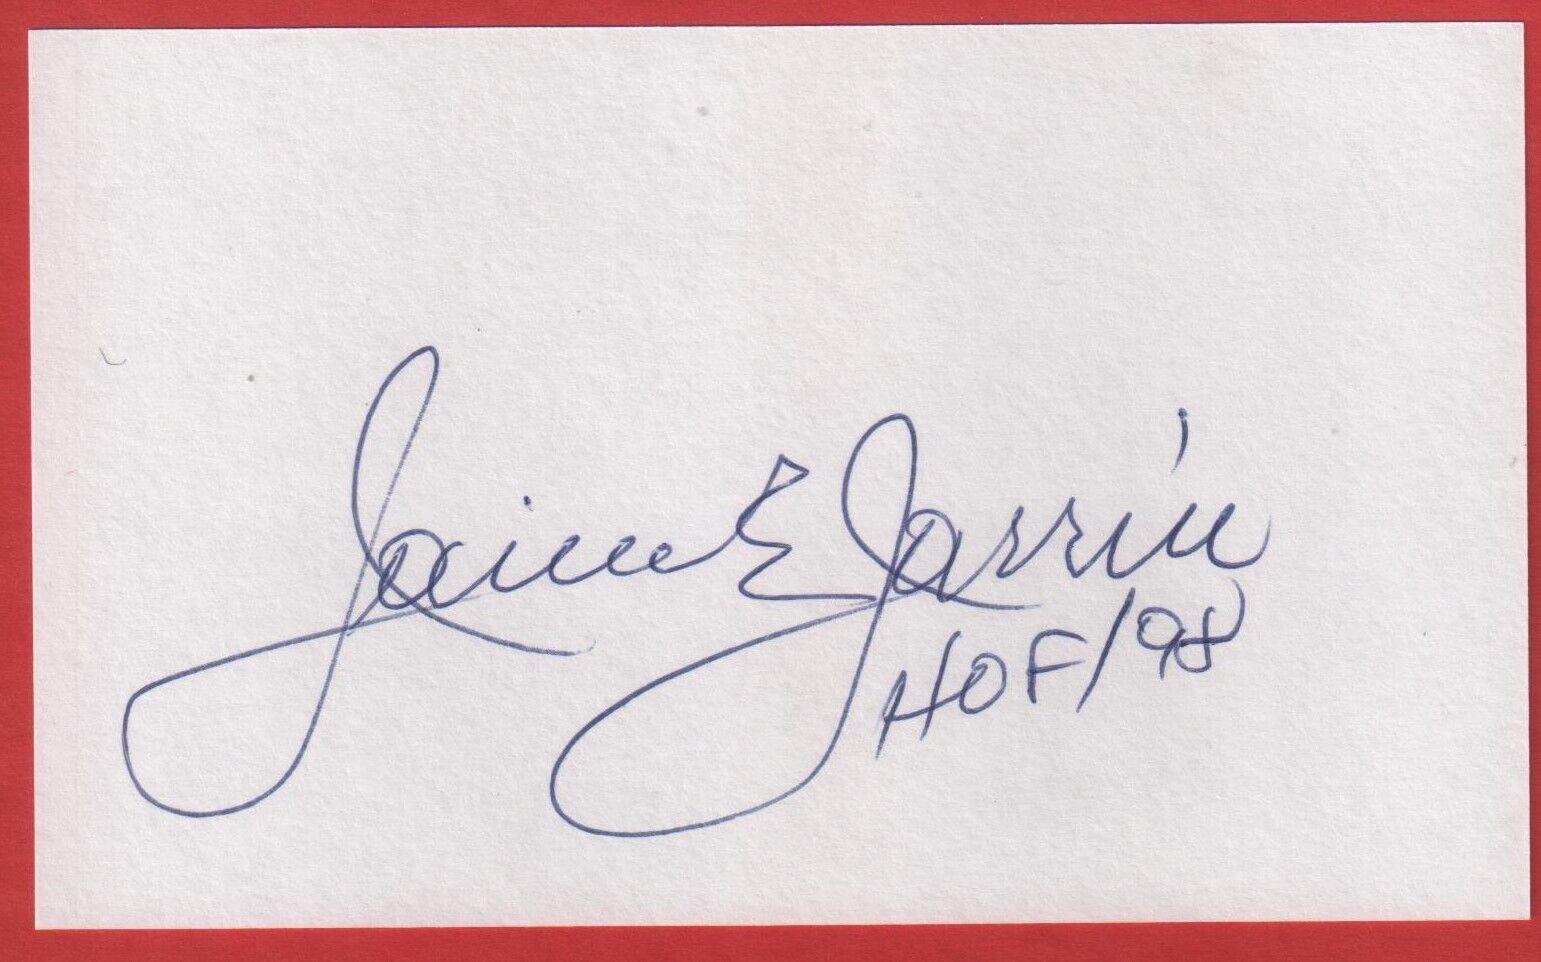 Jaime E Jarrín
HOF/98